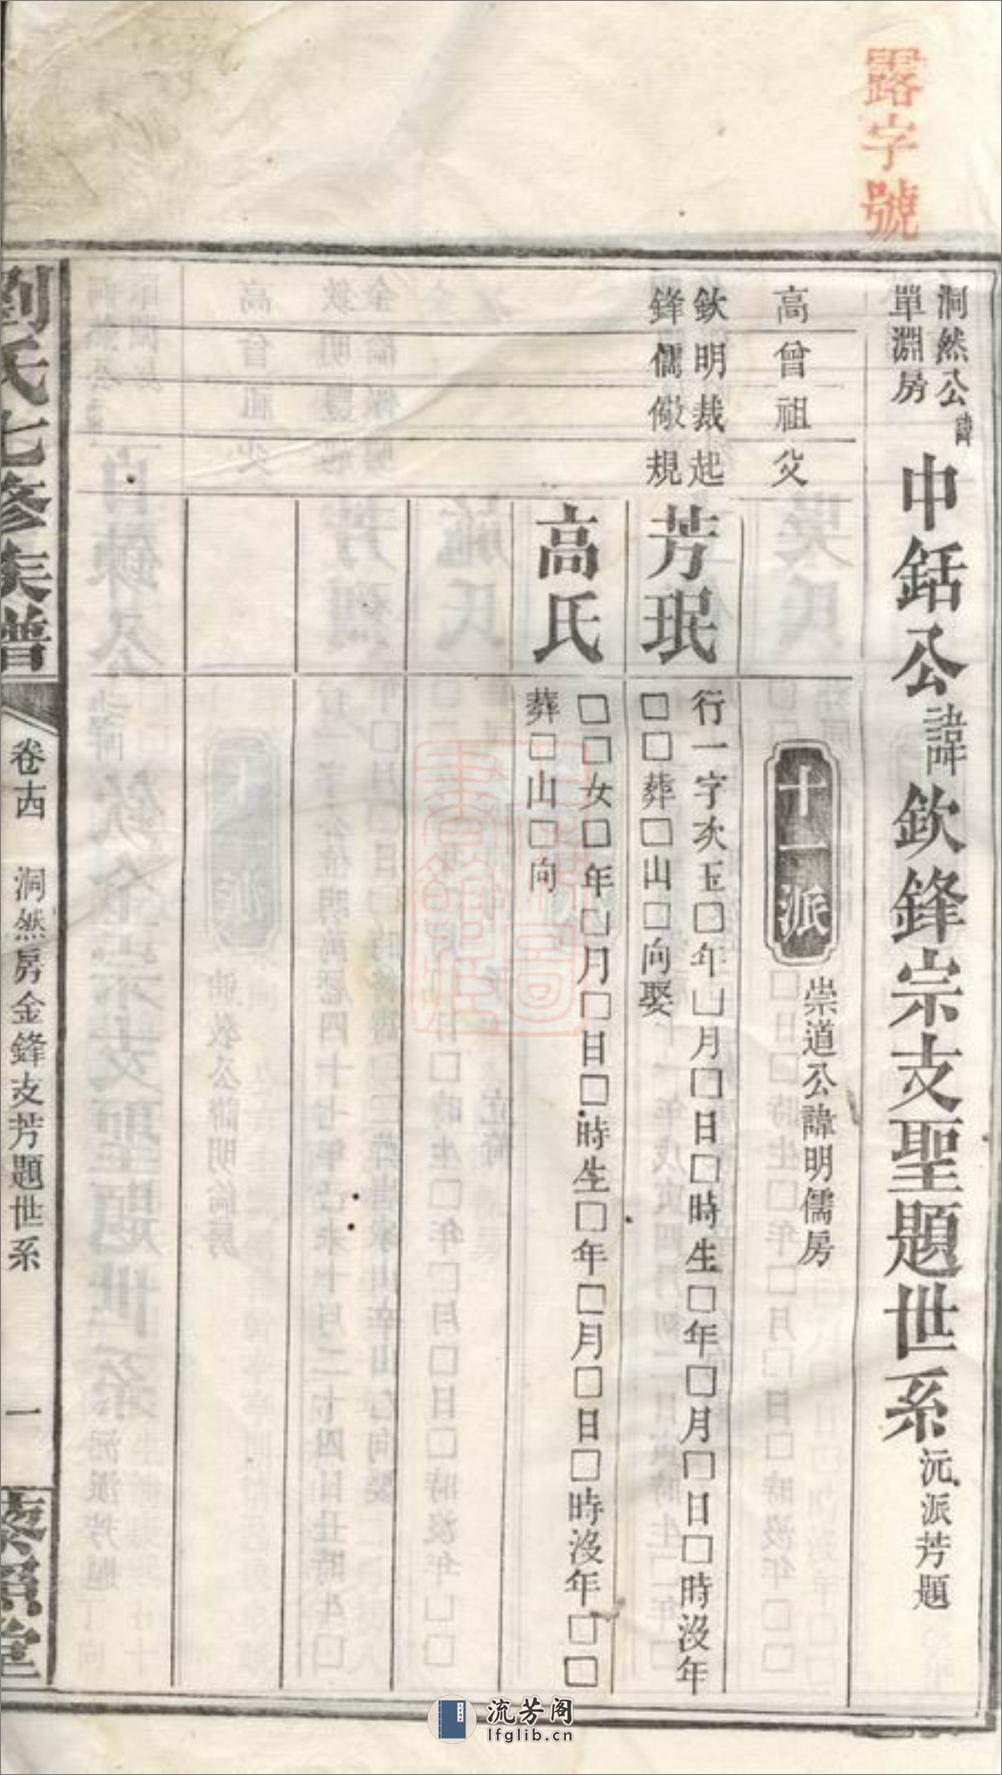 露字號
洞然公諱
單淵房
中銛公諱欽鋒宗支聖題世系沅派芳題
高曾祖父
十一派
崇道公諱明儒房
欽明裁起
鋒儒儆規
芳珉
行一字次玉□年□月□日□時生□年□月□日□時没年
□□葬□山□向娶
高氏
□□女□年□月□日□時生□年□月□日□時没年□□
葬□山□向
劉氏七修族譜
卷十四
洞然房金鋒支芳題世系
一
藜照堂
流芳阁
lfglib.cn